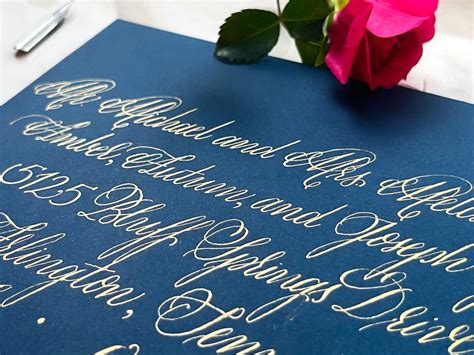 Mr. Michael and Mrs. Meli
Amber, Autumn, and Joseph
5125 Bluff Springs Drive
Arlington, Ten